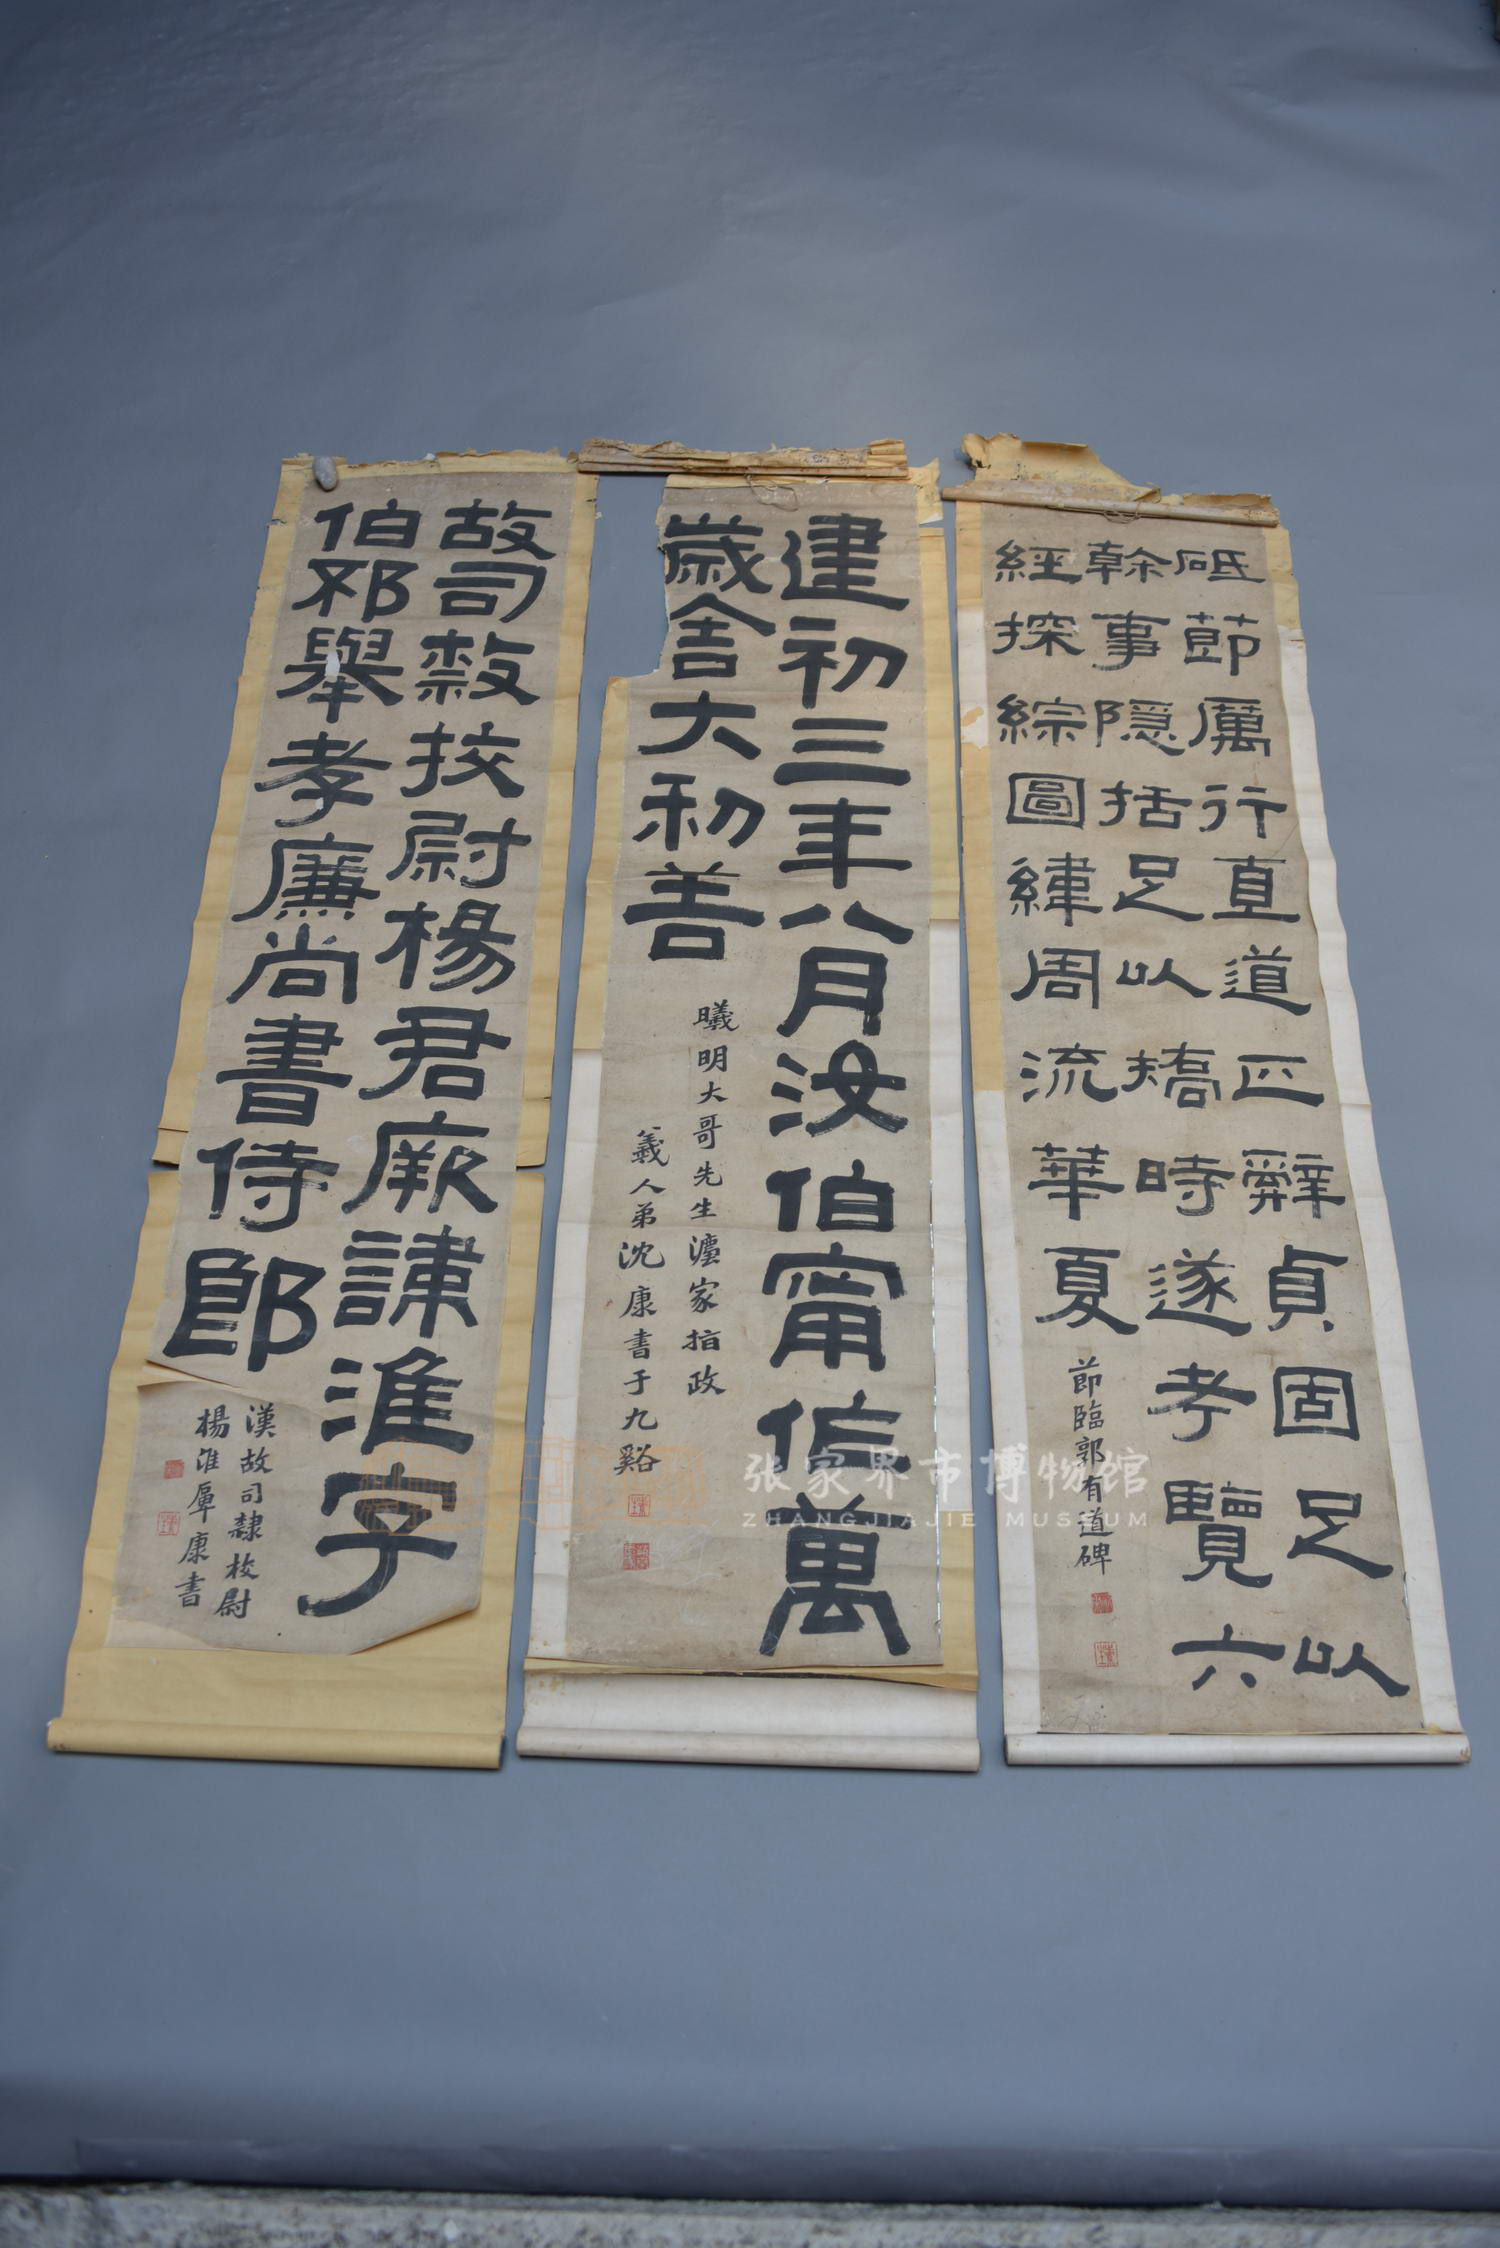 砥節厲行直道正辭貞固足以
幹事隱括足以矯時遂考覽六
經探綜圖緯周流華夏
節臨郭有道碑
建初三年八月汝伯甯作萬
歲舍大利善
曦明大哥先生灋家指政
義人弟沈康書于九谿
故司隸校尉楊君厥諱淮字
伯邳舉孝廉尚書侍郎
漢故司隸校尉
楊淮
康書
张家界市博物馆
ZHANGJIAJIE MUSEUM